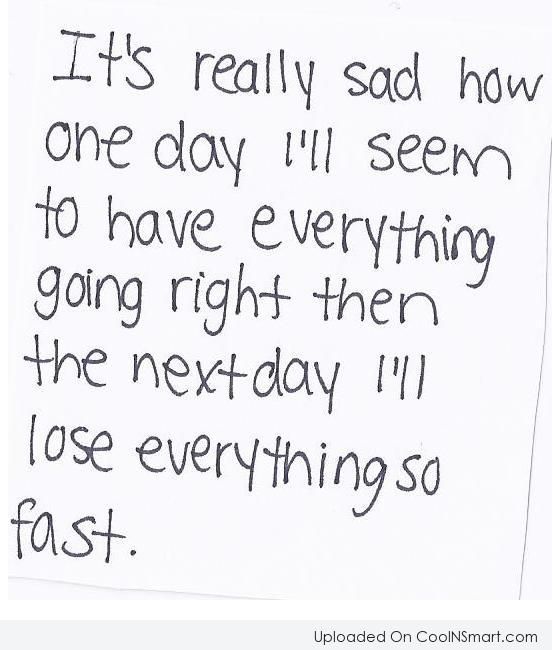 It's really sad how
one day I'll seem
to have everything
going right then
the next day I'll
lose everything so
fast.
Uploaded On CoolNSmart.com